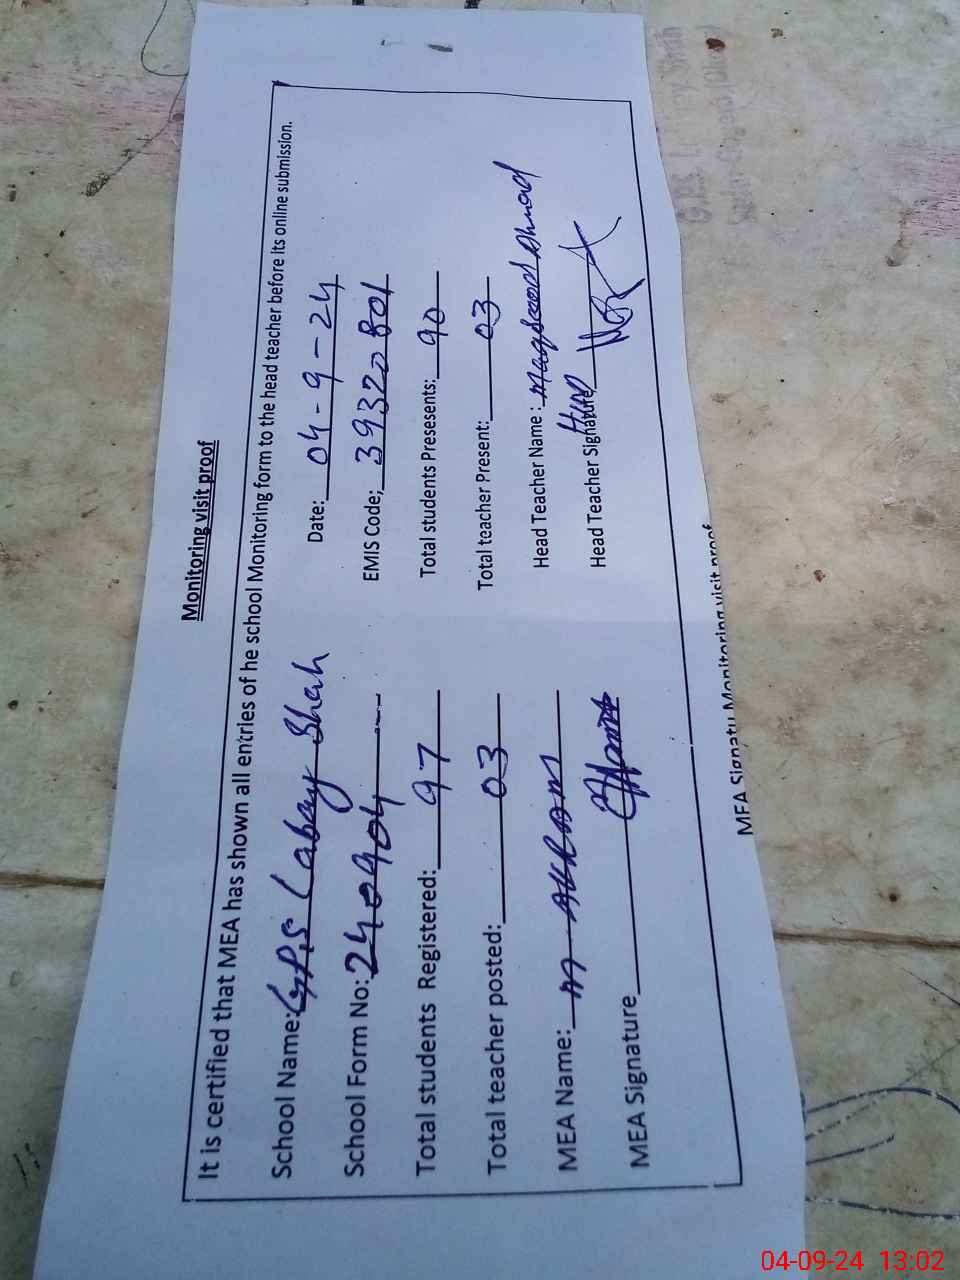 Monitoring visit proof
It is certified that MEA has shown all entries of he school Monitoring form to the head teacher before its online submission.
School Name: GPS Labay Shah Date: 04-9-24
School Form No: 240904 EMIS Code; 39320801
Total students Registered: 97 Total students Presesents: 90
Total teacher posted: 03 Total teacher Present: 03
MEA Name: M AKRAM Head Teacher Name : Maqsood Ahmad
MEA Signature Head Teacher Signature
MEA Signatu Monitoring visit proof
04-09-24 13:02